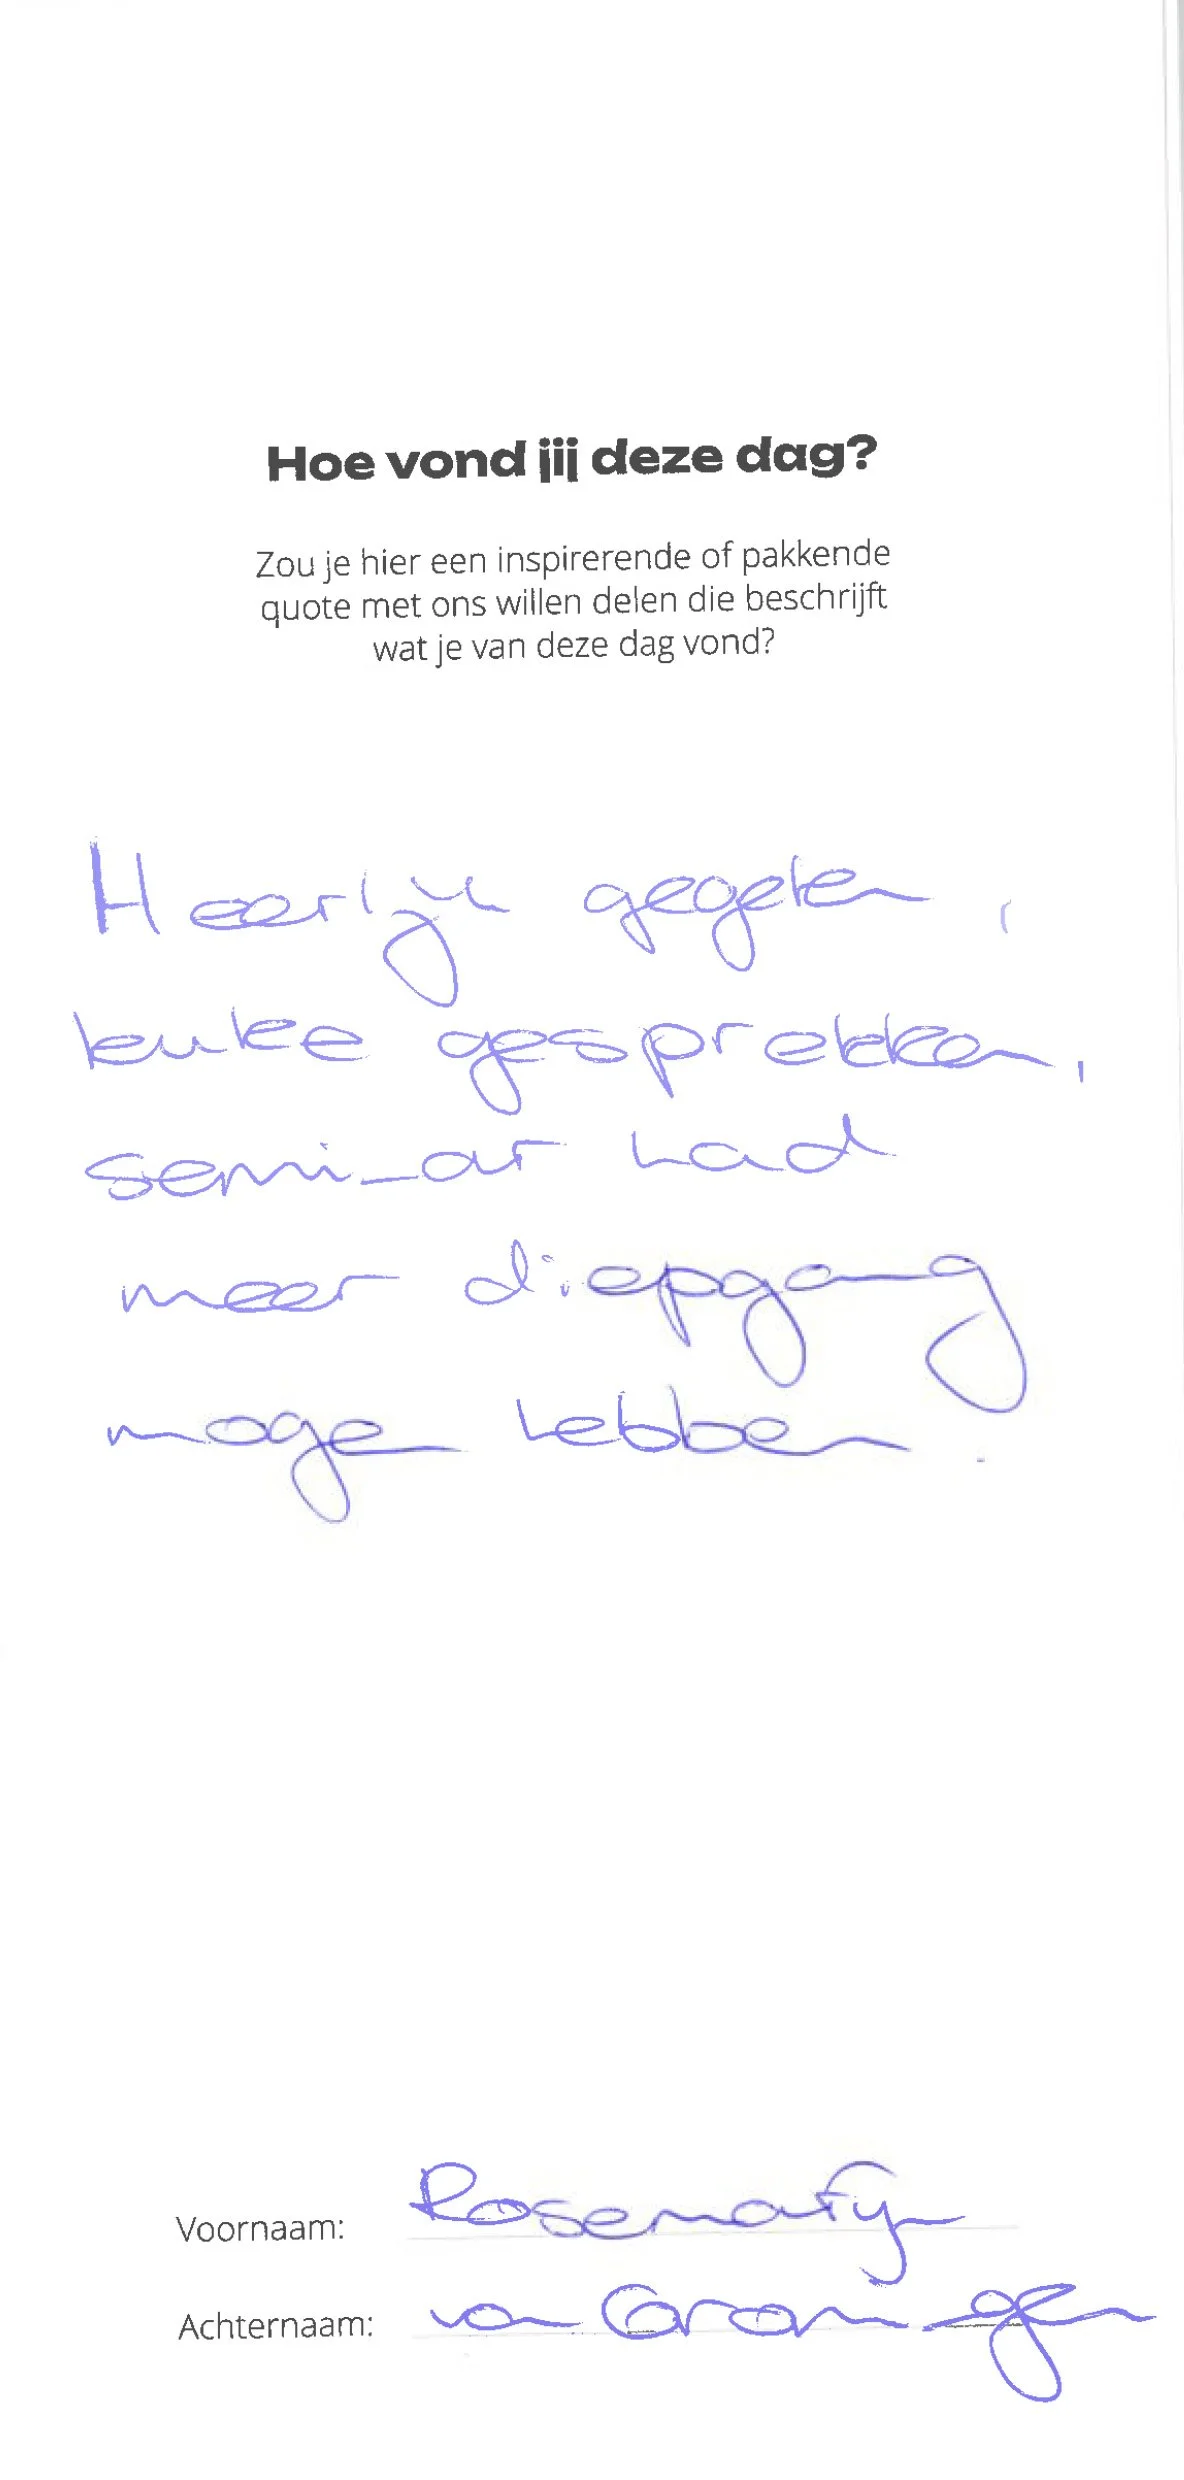 Hoe vond jij deze dag?
Zou je hier een inspirerende of pakkende
quote met ons willen delen die beschrijft
wat je van deze dag vond?
Heerlijk gegeten,
leuke gesprekken,
seminar had
meer diepgang
mogen hebben.
Voornaam: Rosemarijn
Achternaam: van Groningen